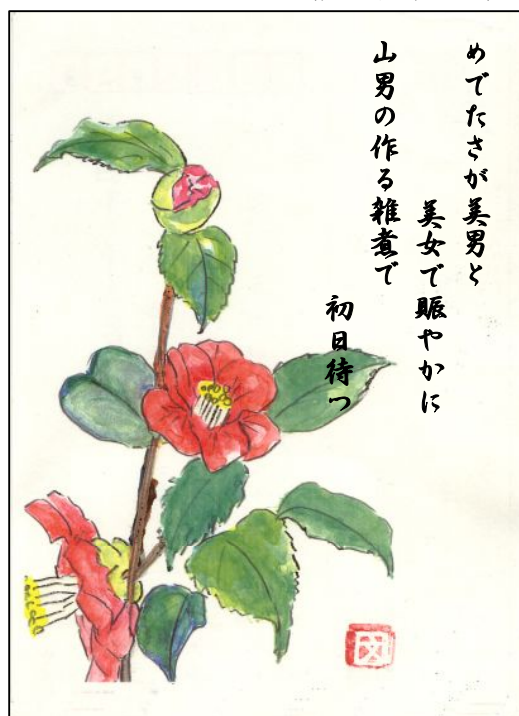 めでたさが美男と
美女で賑やかに
山男の作る雑煮で
初日待つ